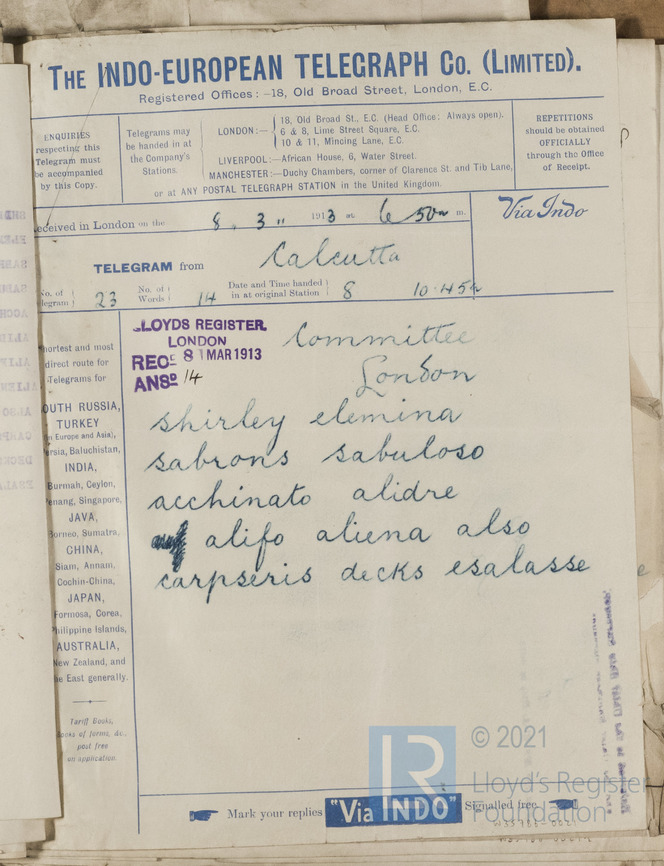 THE INDO-EUROPEAN TELEGRAPH Co. (LIMITED).
Registered Offices:—18, Old Broad Street, London, E.C.
ENQUIRIES
respecting this
Telegram must
be accompanied
by this Copy.
Telegrams may
be handed in at
the Company's
Stations.
LONDON:—
18, Old Broad St., E.C. (Head Office: Always open).
6 & 8, Lime Street Square, E.C.
10 & 11, Mincing Lane, E.C.
LIVERPOOL:—African House, 6, Water Street.
MANCHESTER:—Duchy Chambers, corner of Clarence St. and Tib Lane,
or at ANY POSTAL TELEGRAPH STATION in the United Kingdom.
REPETITIONS
should be obtained
OFFICIALLY
through the Office
of Receipt.
eceived in London on the 8. 3 " 1913 at 6 50 m.
Via Indo
TELEGRAM from Calcutta
No. of
legram 23
No. of
Words 14
Date and Time handed
in at original Station 8 10.45
LOYDS REGISTER
LONDON
REC. 8 MAR 1913
ANSD 14
Committee
London
shirley elemina
sabrons sabuloso
acchinato alidre
alifo aliena also
carpseris decks esalasse
hortest and most
direct route for
Telegrams for
OUTH RUSSIA,
TURKEY
(in Europe and Asia),
ersia, Baluchistan,
INDIA,
Burmah, Ceylon,
enang, Singapore,
JAVA,
Borneo, Sumatra,
CHINA,
Siam, Annam,
Cochin-China,
JAPAN,
Formosa, Corea,
hilippine Islands,
AUSTRALIA,
New Zealand, and
he East generally.
Tariff Books,
ooks of forms, &c.,
post free
on application.
LR
© 2021
Lloyd's Register
Foundation
Mark your replies "Via INDO" Signalled free.